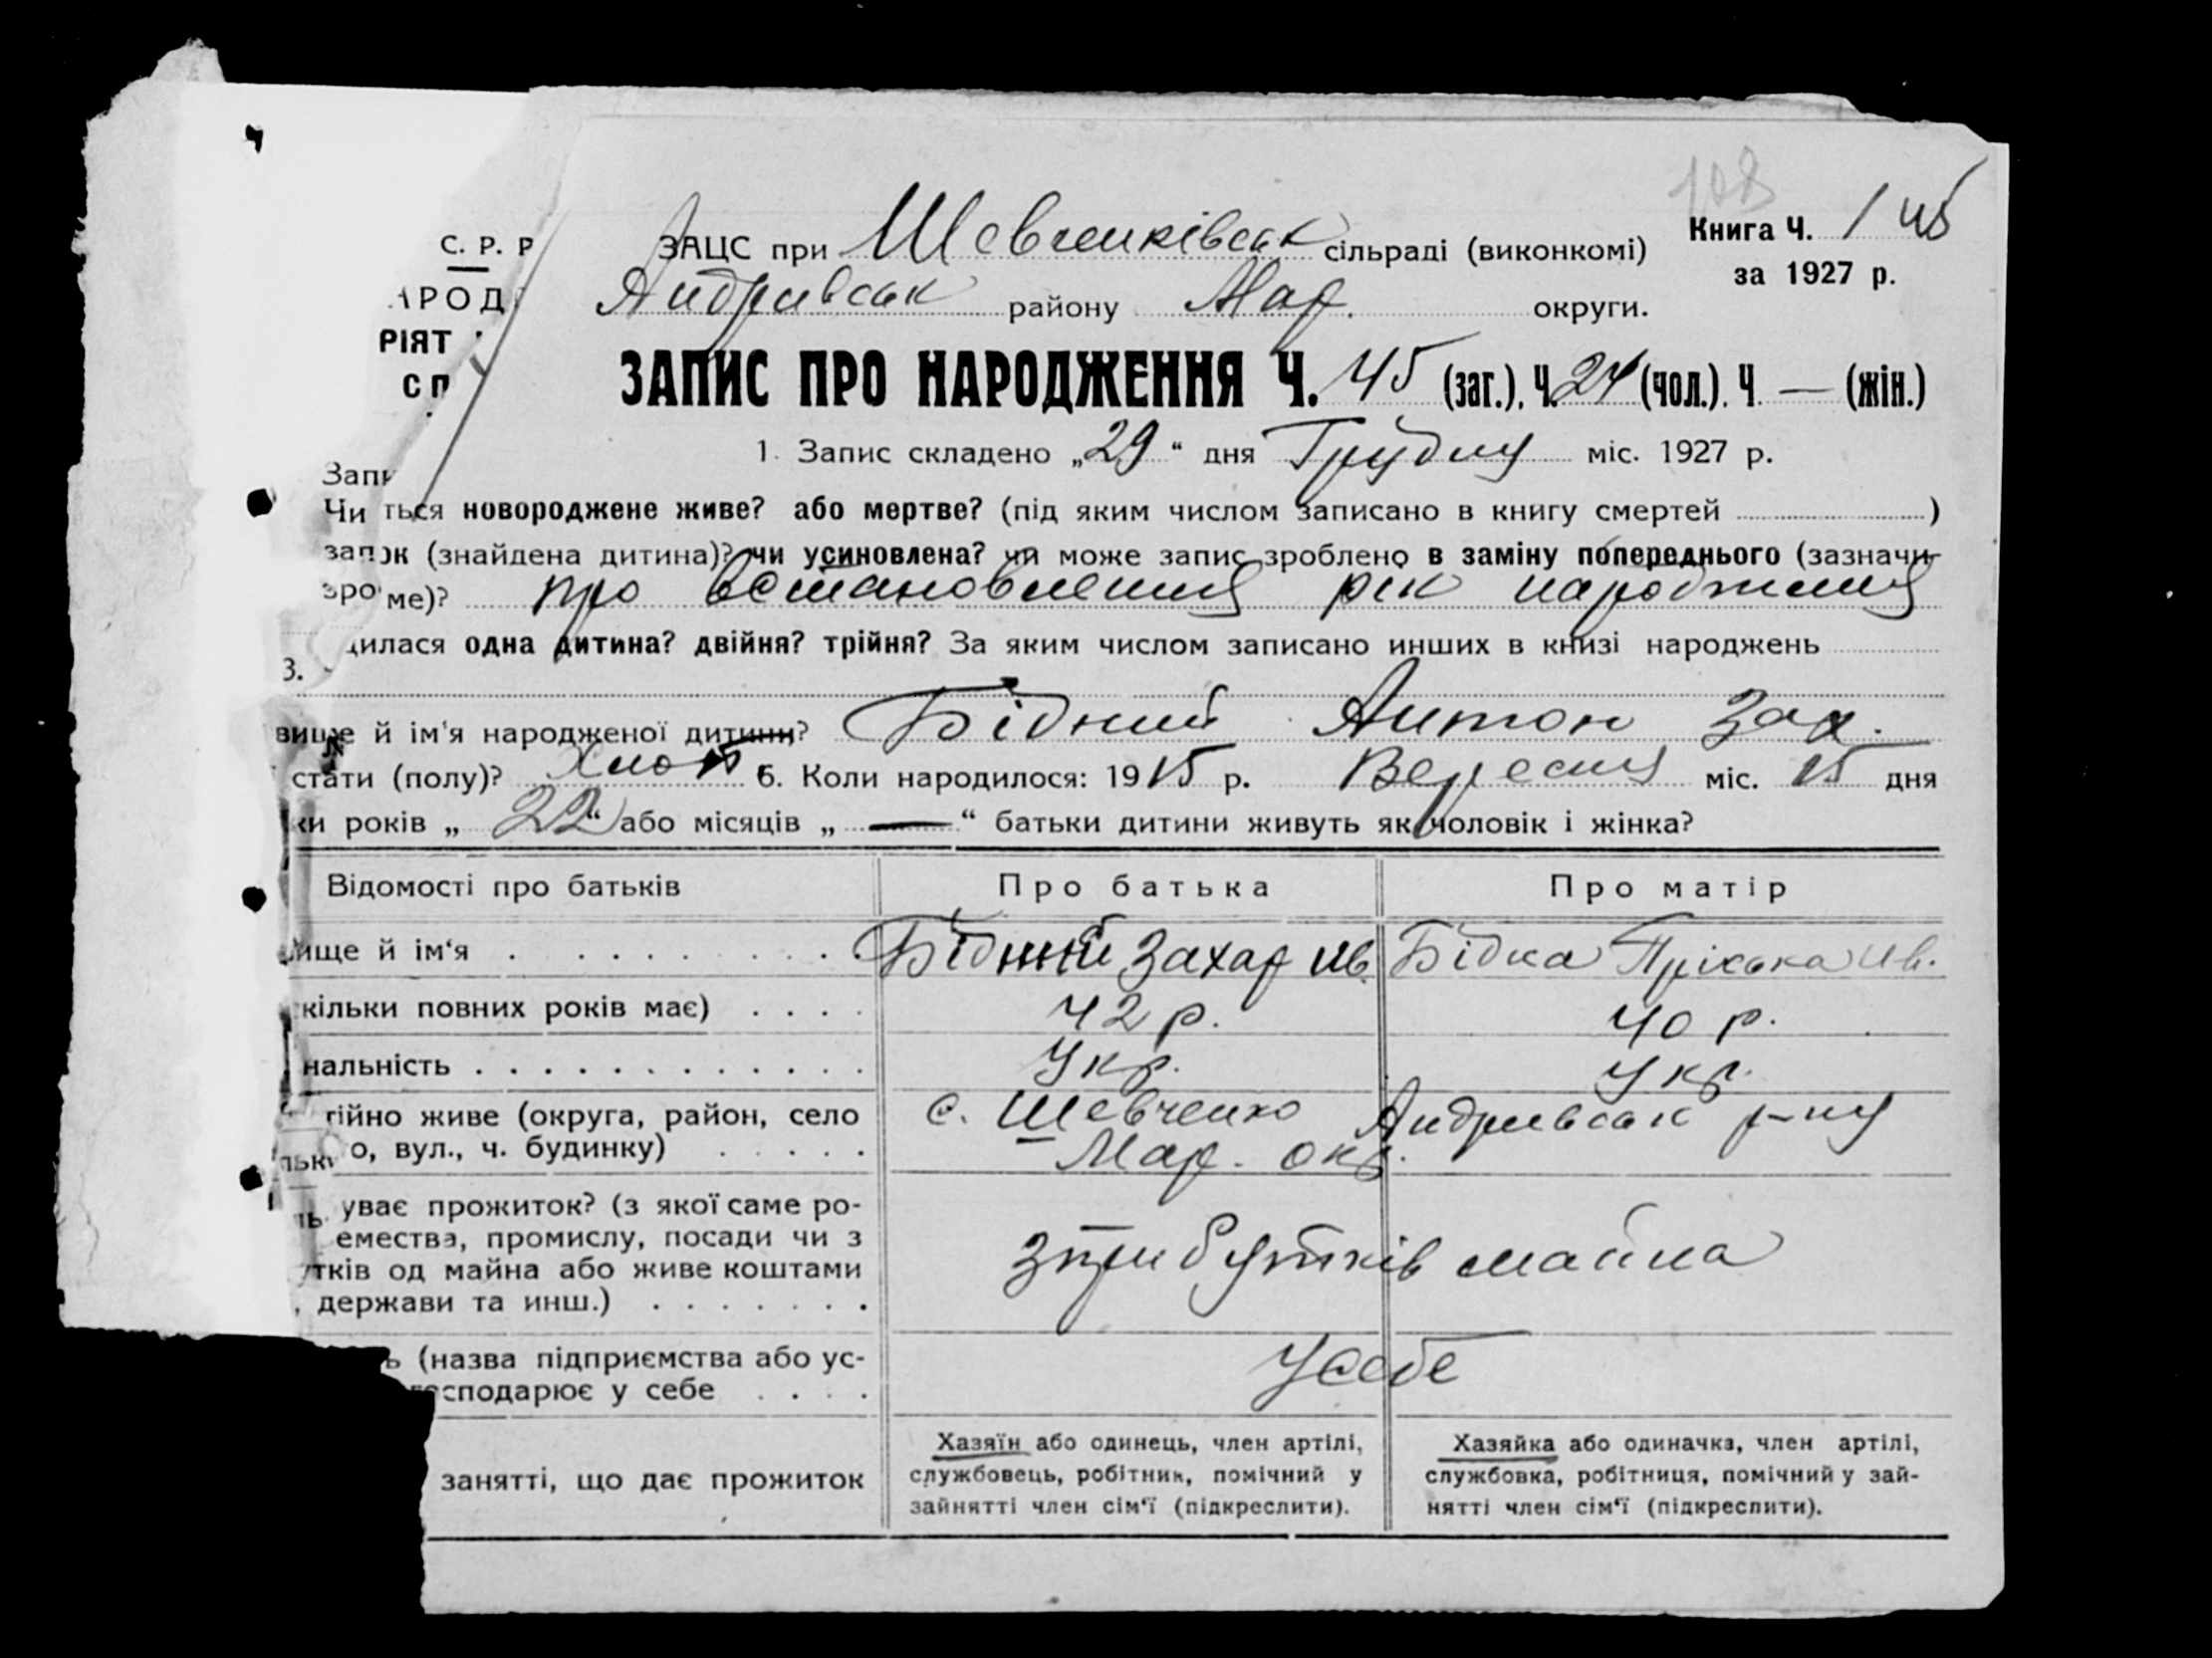 108
Книга Ч. 1
за 1927 р.
С. Р. Р
ЗАЦС при Шевченківськ сільраді (виконкомі)
АРОД
Андрівськ району Мар. округи.
РІЯТ
СП
ЗАПИС ПРО НАРОДЖЕННЯ Ч. 45 (заг.), Ч. 24 (чол.). Ч — (жін.)
1. Запис складено „29“ дня Грудня міс. 1927 р.
Запи
Чи ться новороджене живе? або мертве? (під яким числом записано в книгу смертей )
зап ок (знайдена дитина)? чи усиновлена? чи може запис зроблено в заміну попереднього (зазначи-
зро ме)? про встановлення рік народження
3. дилася одна дитина? двійня? трійня? За яким числом записано инших в книзі народжень
вище й ім'я народженої дитини? Бідний Антон Зах.
стати (полу)? Хлоп. 6. Коли народилося: 1915 р. Вересня міс. 15 дня
ки років „22“ або місяців „—“ батьки дитини живуть як чоловік і жінка?
Відомості про батьків Про батька Про матір
вище й ім'я Бідний Захар Ив. Бідна Пріська Ив.
кільки повних років має) 42 р. 40 р.
нальність Укр. Укр.
тійно живе (округа, район, село с. Шевченко Андрівськ р-ну
о, вул., ч. будинку) Мар. окр.
ує прожиток? (з якої саме ро-
емества, промислу, посади чи з
утків од майна або живе коштами з прибутків майна
, держави та инш.)
ь (назва підприємства або ус- У себе
господарює у себе
занятті, що дає прожиток
Хазяїн або одинець, член артілі,
службовець, робітник, помічний у
зайнятті член сім'ї (підкреслити).
Хазяйка або одиначка, член артілі,
службовка, робітниця, помічний у зай-
нятті член сім'ї (підкреслити).